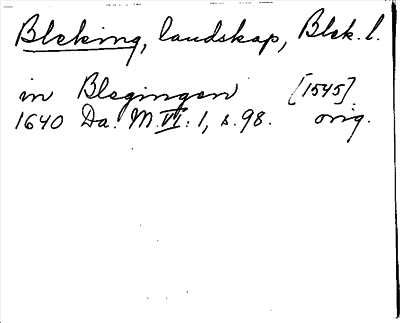 Bleking, landskap, Blek. l.
in Blegingen [1545]
1640 Da. M. VI: 1, s. 98. orig.